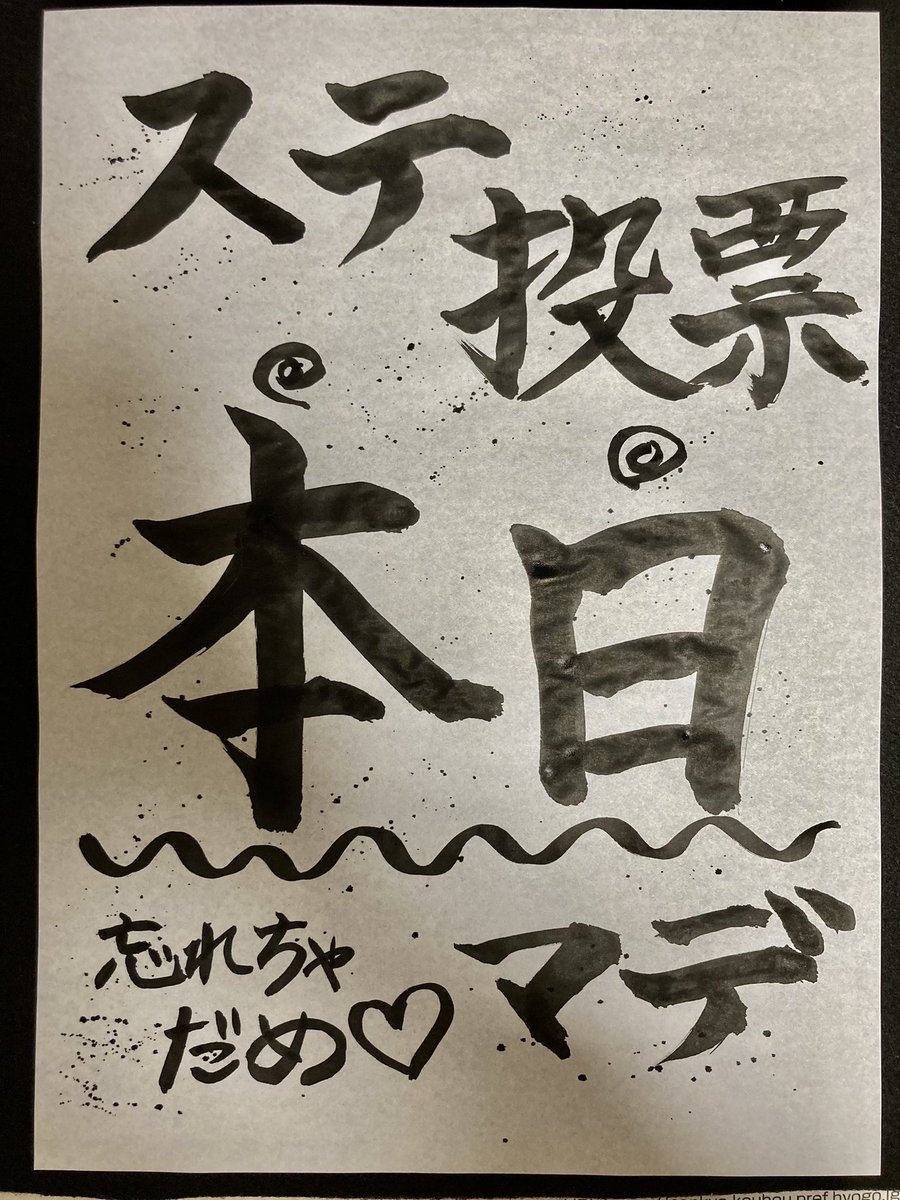 ステ
投票
本日
忘れちゃ
だめ♡
マデ
kouhou.pref.hyogo.lg